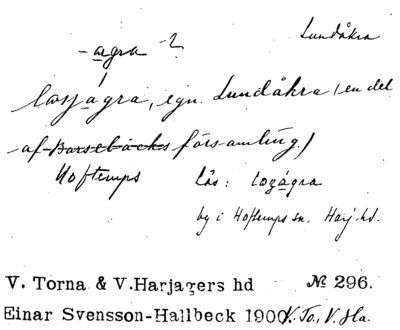 Lundåkra
-agra ?
lossågra, egn. Lundåkra (en del
af Barsebäcks församling.)
Hoftemps Läs: lozågra
by i Hoftemps sn. Harj. hd.
V. Torna & V.Harjagers hd № 296.
Einar Svensson-Hallbeck 1900 V. To., V. Ha.